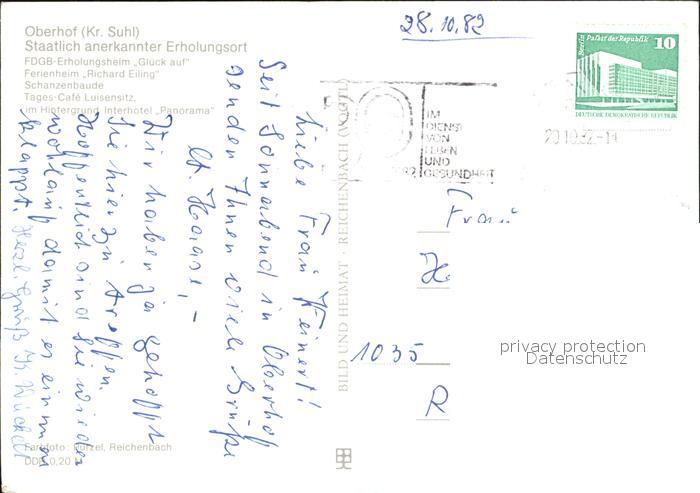 Oberhof (Kr. Suhl)
Staatlich anerkannter Erholungsort
FDGB-Erholungsheim „Glück auf"
Ferienheim „Richard Eiling"
Schanzenbaude
Tages-Café Luisensitz,
im Hintergrund Interhotel „Panorama"
28.10.82
Berlin Palast der Republik
10
DEUTSCHE DEMOKRATISCHE REPUBLIK
IM
DIENST
VON
LEBEN
UND
GESUNDHEIT
Liebe Frau Keinert!
Seit Sonnabend in Oberhof
senden Ihnen viele Grüße
Wir haben ja gehofft
Sie hier zu treffen.
Hoffentlich sind Sie wieder
wohlauf damit es einmal
klappt. Herzl. Grüße
BILD UND HEIMAT · REICHENBACH (VOGTL)
Frau
1035
R
privacy protection
Datenschutz
Farbfoto: Kürzel, Reichenbach
DDR 0,20 M